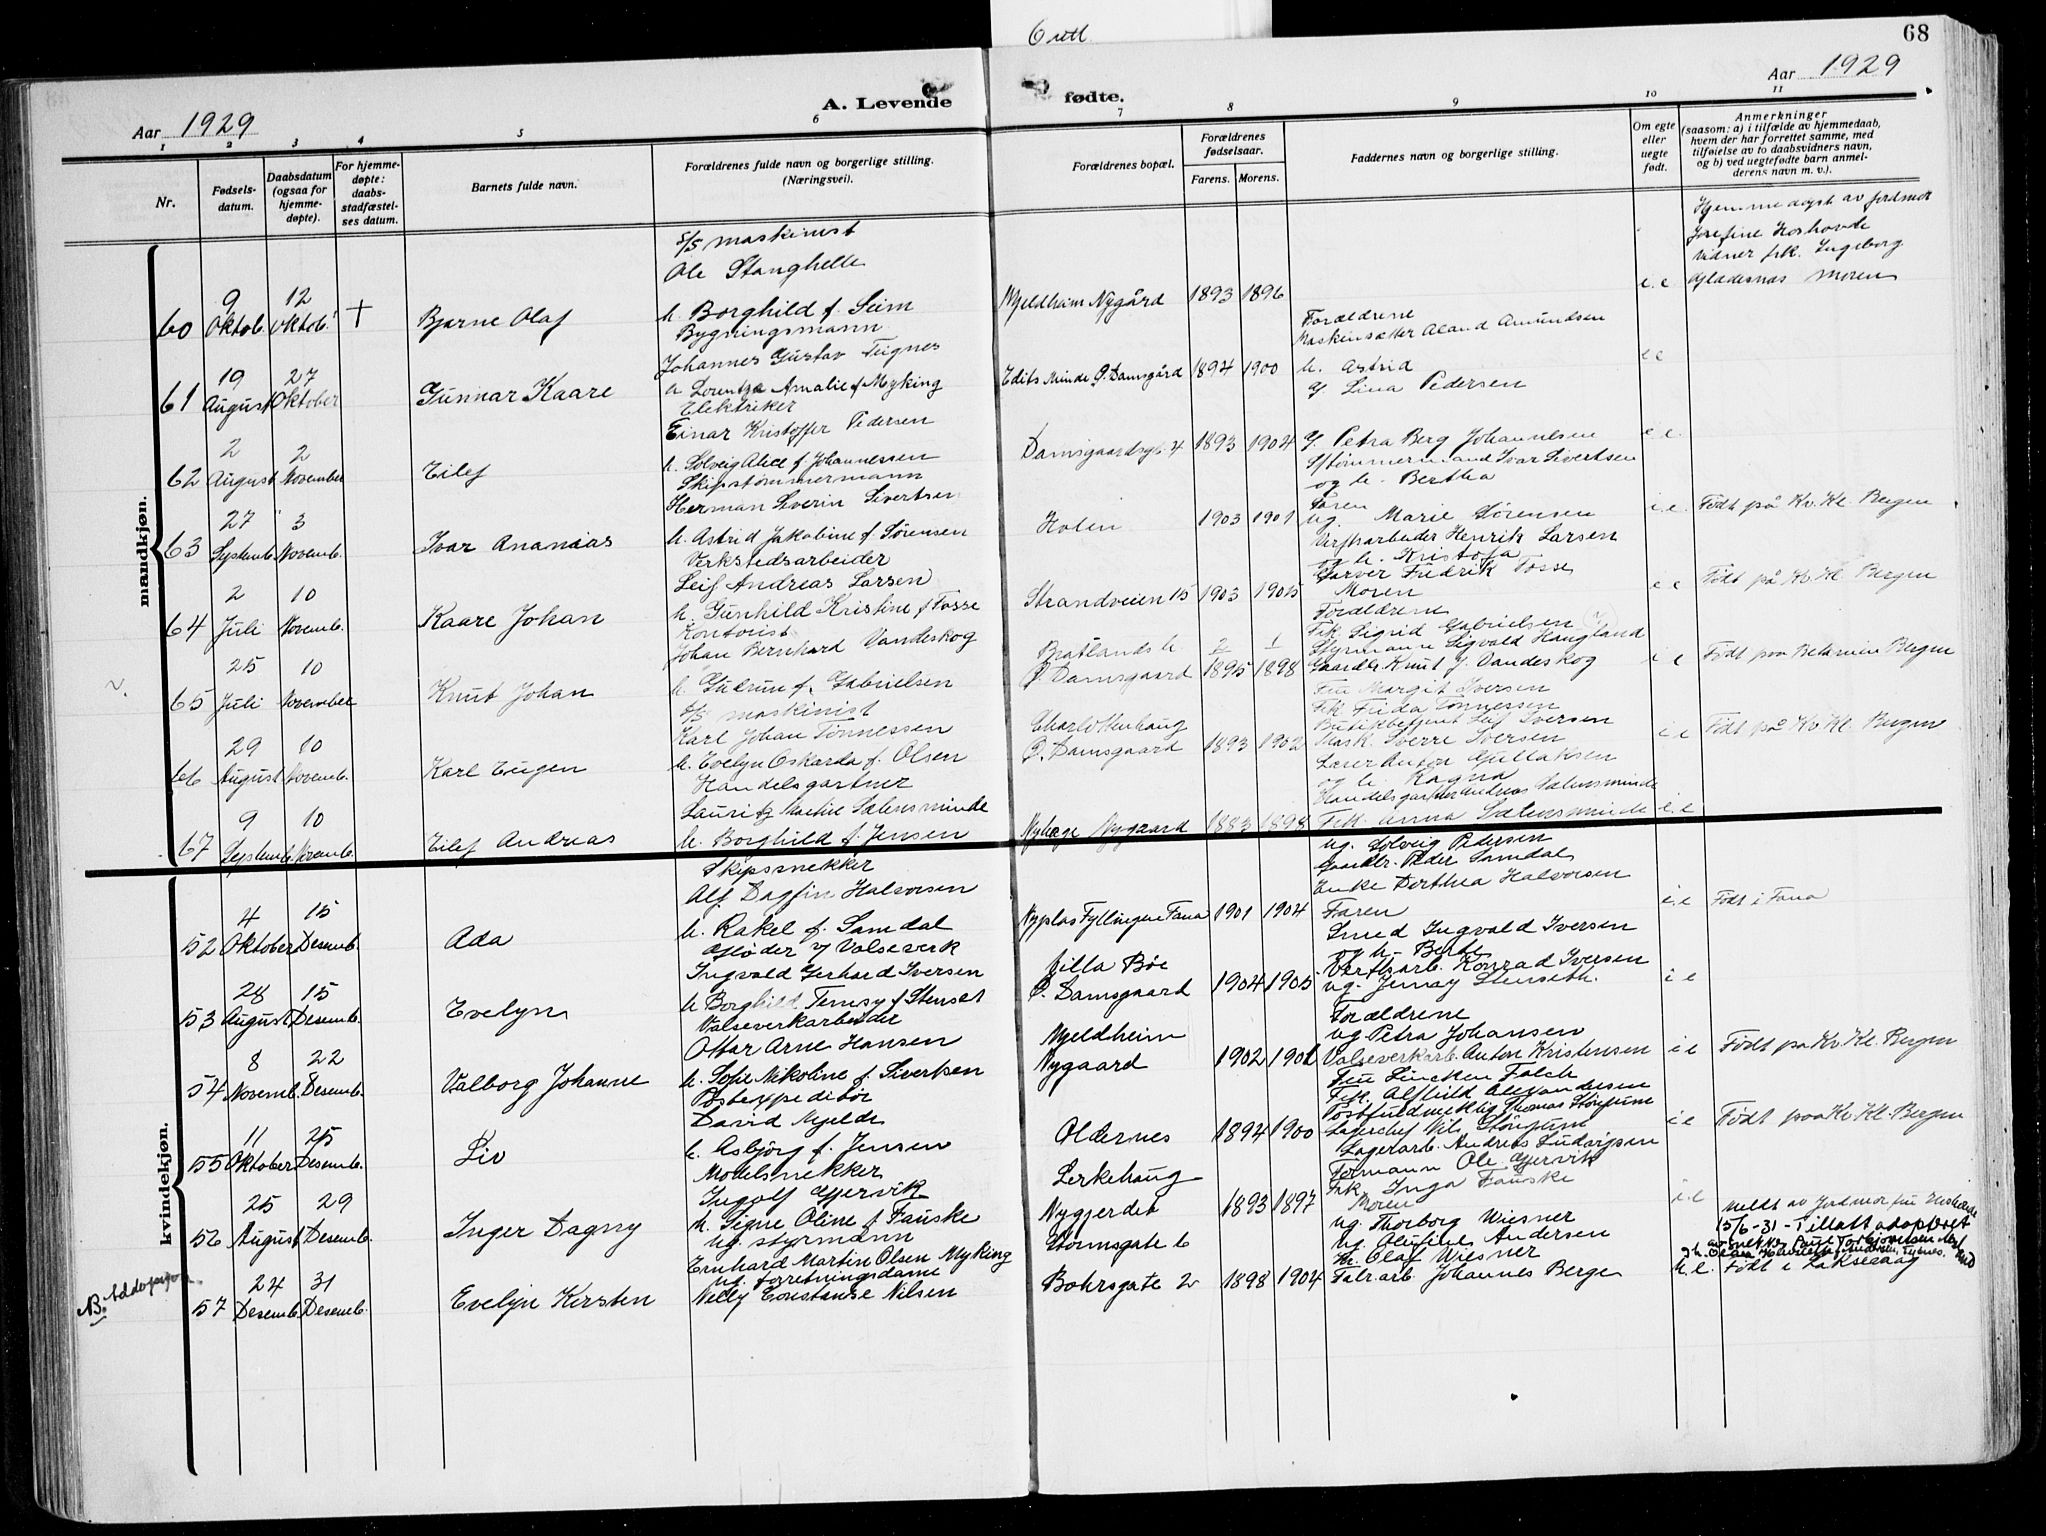 6 utl.
68
Aar 1929
A. Levende fødte.
Aar 1929
1 2 3 4 5 6 7 8 9 10 11
Nr.
Fødsels-
datum.
Daabsdatum
(ogsaa for
hjemme-
døpte).
For hjemme-
døpte:
daabs-
stadfæstel-
ses datum.
Barnets fulde navn.
Forældrenes fulde navn og borgerlige stilling.
(Næringsvei).
Forældrenes bopæl.
Forældrenes
fødselsaar.
Farens. Morens.
Faddernes navn og borgerlige stilling.
Om egte
eller
uegte
født.
Anmerkninger
(saasom: a) i tilfælde av hjemmedaab,
hvem der har forrettet samme, med
tilføielse av to daabsvidners navn,
og b) ved uegtefødte barn anmel-
derens navn m. v.).
mandkjøn.
60
9 Oktob.
12 Oktob.
+
Bjarne Olaf
s/s maskinist
Ole Stanghelle
h. Borghild f. Seim
Mjeldheim Nygård
1893 1896
i. e
Hjemmedøpt av jordmor
Josefine
Vidner frk. Ingeborg
Moren
61
19 August
27 Oktober
Gunnar Kaare
Bygningsmann
Johannes Gustav Teignes
h. Lorentza Amalie f. Myking
Edits Minde Ø. Damsgård
1894 1900
Forældrene
Maskinsætter Aland Amundsen
h. Astrid
g. Lina Pedersen
i e
62
2 August
2 November
Eilef
Elektriker
Einar Kristoffer Pedersen
h. Solveig Alice f. Johannessen
Damsgaardsgt. 4
1893 1904
g. Petra Berg Johannesen
S/tømmermand Ivar Sivertsen
og h. Bertha
i e.
63
27 Septemb.
3 Novemb.
Ivar Ananias
Skipstømmermann
Herman Severin Sivertsen
h. Astrid Jakobine f. Sørensen
Holen
1903 1901
Faren
ug. Marie Sørensen
Verftsarbeider Henrik Larsen
og h. Kristofa
i. e
Født på Kv. Kl. Bergen
64
2 Juli
10 Novemb.
Kaare Johan
Verkstedsarbeider
Leif Andreas Larsen
h. Gunhild Kristine f. Fosse
Strandveien 15
1903 1905
Garver Fredrik Fosse
Moren
i e
Født på Kv. Kl. Bergen
65
25 Juli
10 November
Knut Johan
Kontorist
Johan Bernhard Vandeskog
h. Gudrun f. Gabrielsen
Bratlands h.
Ø. Damsgaard
1895 1898
Forældrene
Frk. Sigrid Gabrielsen
Styrmann Sigvald Haugland
Gaardbr. Knut J. Vandeskog
i e
Født paa Betanien Bergen
66
29 August
10 Novemb.
Karl Eugen
s/s maskinist
Karl Johan Tønnessen
h. Evelyn Oskarda f. Olsen
Charlottenhaug
Ø. Damsgaard
1893 1902
Fru Margit Iversen
Frk Frida Tønnessen
Butikbetjent Leif Iversen
Mask. Sverre Iversen
i e
Født på Kv. Kl. Bergen
67
9 Septemb.
10 Novemb.
Eilef Andreas
Handelsgartner
Lauritz Martin Sælensminde
h. Borghild f. Jensen
Nyhage Nygaard
1883 1898
Lærer Anton Gullaksen
og h. Ragna
Handelsgartner Andreas Sælensminde
Frk. Anna Sælensminde
i. e
kvindekjøn.
52
4 Oktober
15 Desemb.
Ada
Skipssnekker
Alf Dagfin Halvorsen
h. Rakel f. Samdal
Nyplas Fyllingen Fana
1901 1904
ug. Solveig Pedersen
Gaardbr. Peder Samdal
Enke Dorthea Halvorsen
Faren
i. e
Født i Fana
53
28 August
15 Desemb.
Evelyn
Gløder v/ Valseverk
Ingvald Gerhard Iversen
h Borghild Temsy f. Stenset
Villa Bøe
Ø. Damsgaard
1904 1905
Smed Ingvald Iversen
og h. Berte
Verftsarb. Konrad Iversen
ug. Jenny Stenseth.
i e
54
8 Novemb.
22 Desemb.
Valborg Johanne
Valseverkarbeider
Ottar Arne Hansen
h. Sofie Nikoline f. Sivertsen
Mjeldheim
Nygaard
1902 1901
Forældrene
ug Petra Johansen
Valseverkarb. Anton Kristensen
i e
Født på Kv. Kl. Bergen
55
11 Oktober
25 Desemb.
Liv
Postexpeditør
David Mjelde
h. Asbjørg f. Jensen
Oldernes
1894 1900
Fru Lincken Falch
Frk. Alfhild Alexandersen
Postfuldmektig Thomas Størksine
Lagerchef Nils
Lagerarb. Andreas Ludvigsen
i e
Født paa Kv. Kl. Bergen
56
25 August
29 Desemb.
Inger Dagny
Modelsnekker
Ingolf Gjervik
h. Signe Oline f. Fauske
Lerkehaug
Nygjerdet
1893 1897
Formann Ole Gjervik
Frk. Inga Fauske
Moren
i. e
NB. Addopsjon
57
24 Desemb.
31 Desemb.
Evelyn Kirsten
ug. styrmann
Ernhard Martin Olsen Myking
ug. forretningsdame
Nelly Constanse Nilsen
Stormsgate 6
Bohrsgate 2
1898 1904
ug. Thorborg Wiesner
ug. Olufine Andersen
Hr. Olaf Wiesner
Fabr.arb. Johannes Berge
u. e.
Meldt av Jordmor fru
15/6-31 - Tillatt adoptert
av snekker Paul Torbjørnsen
Født i Laksevaag